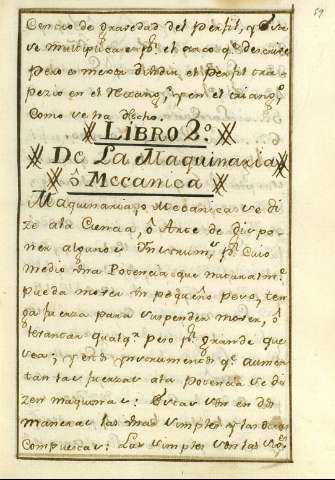 59
Centro de gravedad del Perfil, y este
se multiplica pr. el arco qe. descrive
pero es menester dividir el Perfil tra
pezio en el Rectang.o y en el triang.o
Como se ha dicho.
LIBRO 2.o
De La Maquinaria
ô Mecanica
Maquinaria, ô Mecanica se di
ze ala Ciencia, ô Arte de dispo
ner algunos Instrum.s pr. cuio
medio una Potencia que naturalm.e
pueda mover un pequeño peso, ten
ga fuerza para suspender mover, ô
levantar qualq.r peso pr. grande que
sea; y estos ynstrumentos qe. aumen
tan las fuerzas ala potencia se di
zen maquinas: Estas son en dos
maneras las unas simples y las otras
Compuestas: Las simples son las